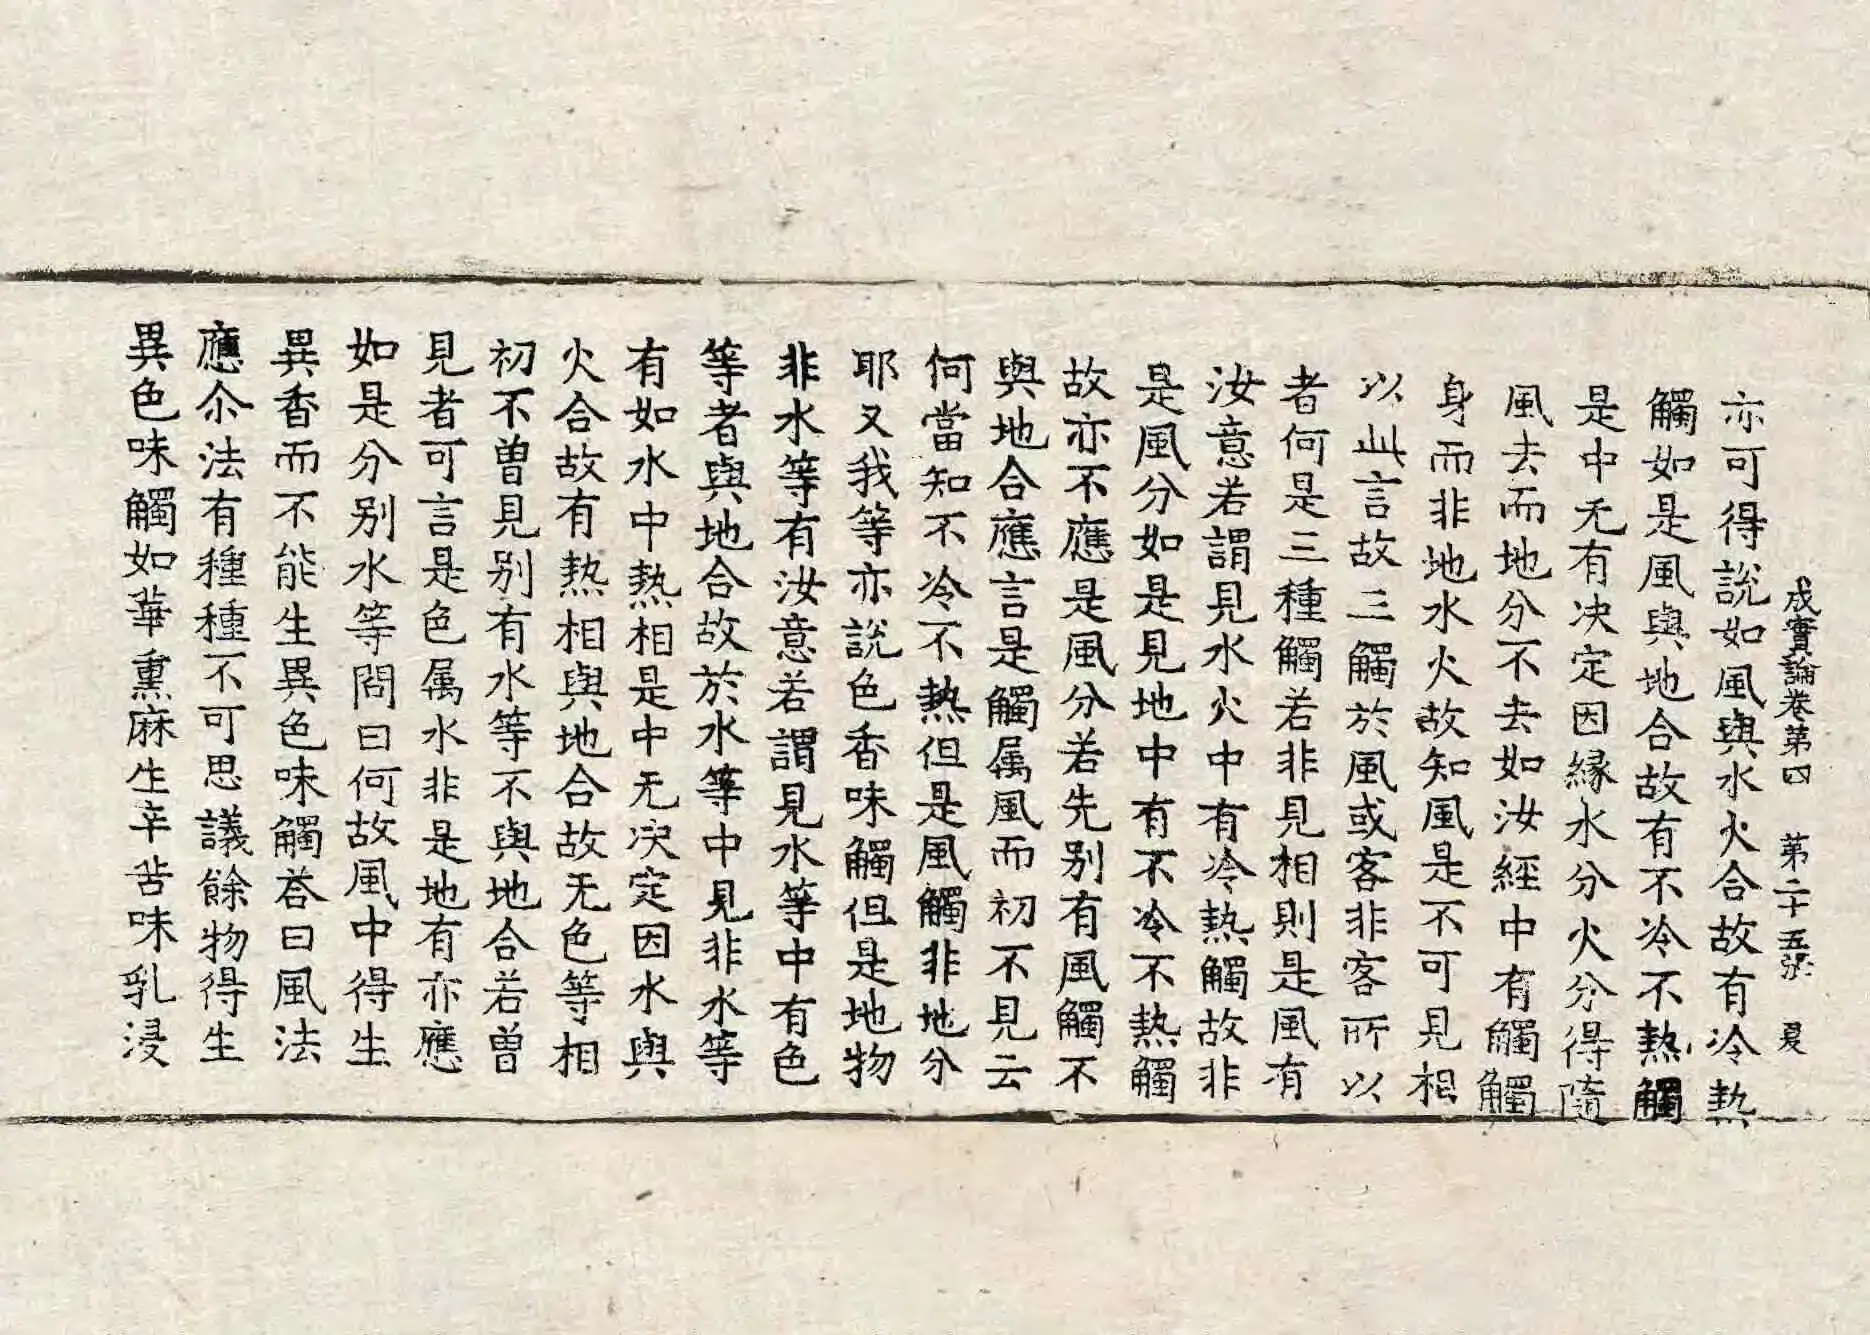 成實論卷第四　第二十五張　夏
亦可得說如風與水火合故有冷熱
觸如是風與地合故有不冷不熱觸
是中无有决定因緣水分火分得隨
風去而地分不去如汝經中有觸觸
身而非地水火故知風是不可見相
以此言故三觸於風或客非客所以
者何是三種觸若非見相則是風有
汝意若謂見水火中有冷熱觸故非
是風分如是見地中有不冷不熱觸
故亦不應是風分若先別有風觸不
與地合應言是觸属風而初不見云
何當知不冷不熱但是風觸非地分
耶又我等亦說色香味觸但是地物
非水等有汝意若謂見水等中有色
等者與地合故於水等中見非水等
有如水中熱相是中无决定因水與
火合故有熱相與地合故无色等相
初不曾見別有水等不與地合若曽
見者可言是色属水非是地有亦應
如是分別水等問曰何故風中得生
異香而不能生異色味觸荅曰風法
應尒法有種種不可思議餘物得生
異色味觸如華熏麻生辛苦味乳浸